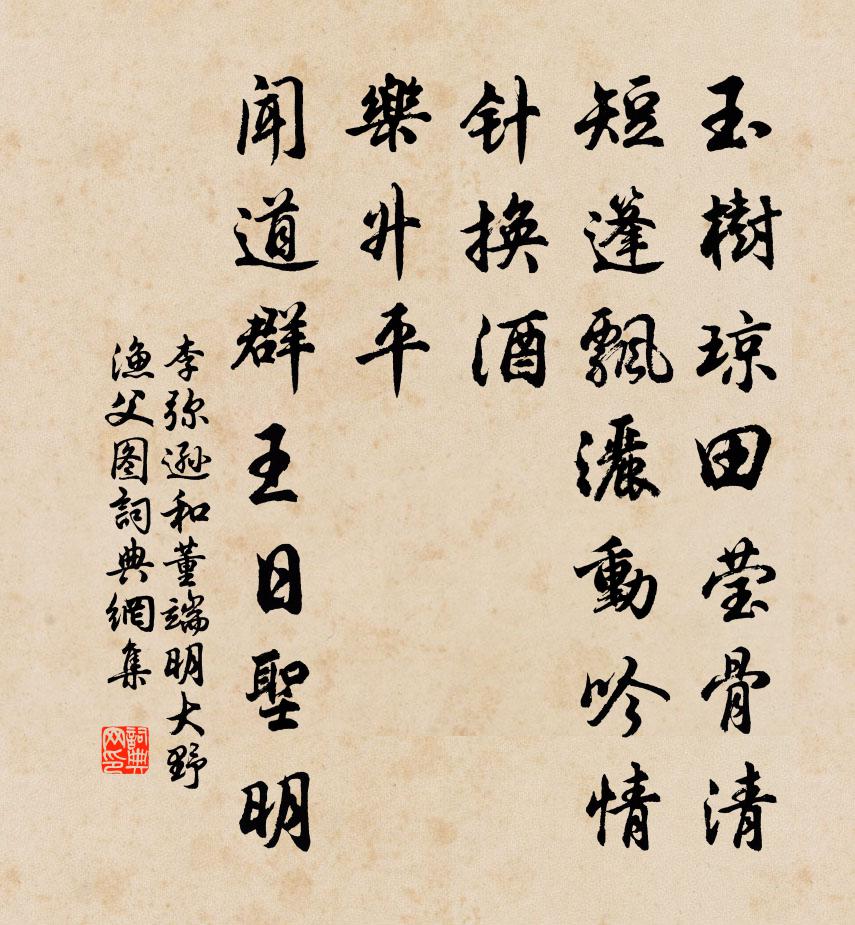 玉樹琼田莹骨清
短蓬飄灑動吟情
针換酒
樂升平
闻道群王日聖明
李弥逊和董端明大野
渔父图詞典網集
詞典网印